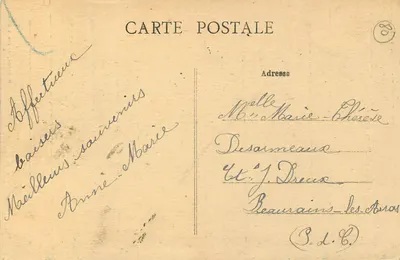 CARTE POSTALE
80
Affectueux
baisers
Meilleurs souvenirs
Anne-Marie
Adresse
Melle Marie-Thérèse
Desormeaux
Et. J. Dreux
Beaurains-les-Arras
(P. d. C.)